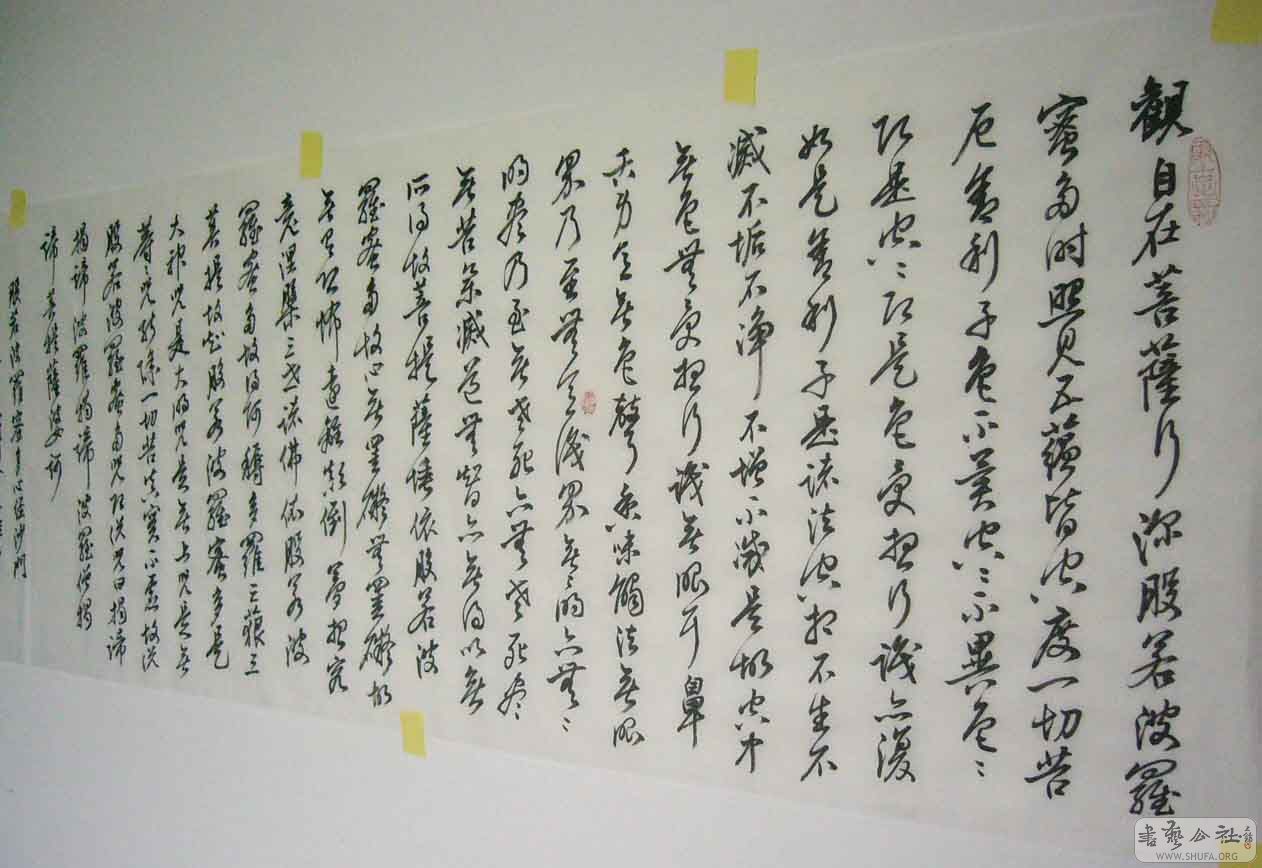 觀自在菩薩行深般若波羅
蜜多時照見五蘊皆空度一切苦
厄舍利子色不異空〻不異色〻
即是空〻即是色受想行識亦復
如是舍利子是諸法空相不生不
滅不垢不淨不增不減是故空中
無色無受想行識無眼耳鼻
舌身意無色聲香味觸法無眼
界乃至無意識界無〻明亦無〻
明盡乃至無老死亦無老死盡
無苦集滅道無智亦無得以無
所得故菩提薩埵依般若波
羅蜜多故心無罣礙無罣礙故
無有恐怖遠離顛倒夢想究
竟涅槃三世諸佛依般若波
羅蜜多故得阿耨多羅三藐三
菩提故知般若波羅蜜多是
大神咒是大明咒是無上咒是無
等〻咒能除一切苦真實不虛故說
般若波羅蜜多咒即說咒曰揭諦
揭諦波羅揭諦波羅僧揭
諦菩提薩婆訶
般若波羅蜜多心經沙門
書藝公社
WWW.SHUFA.ORG